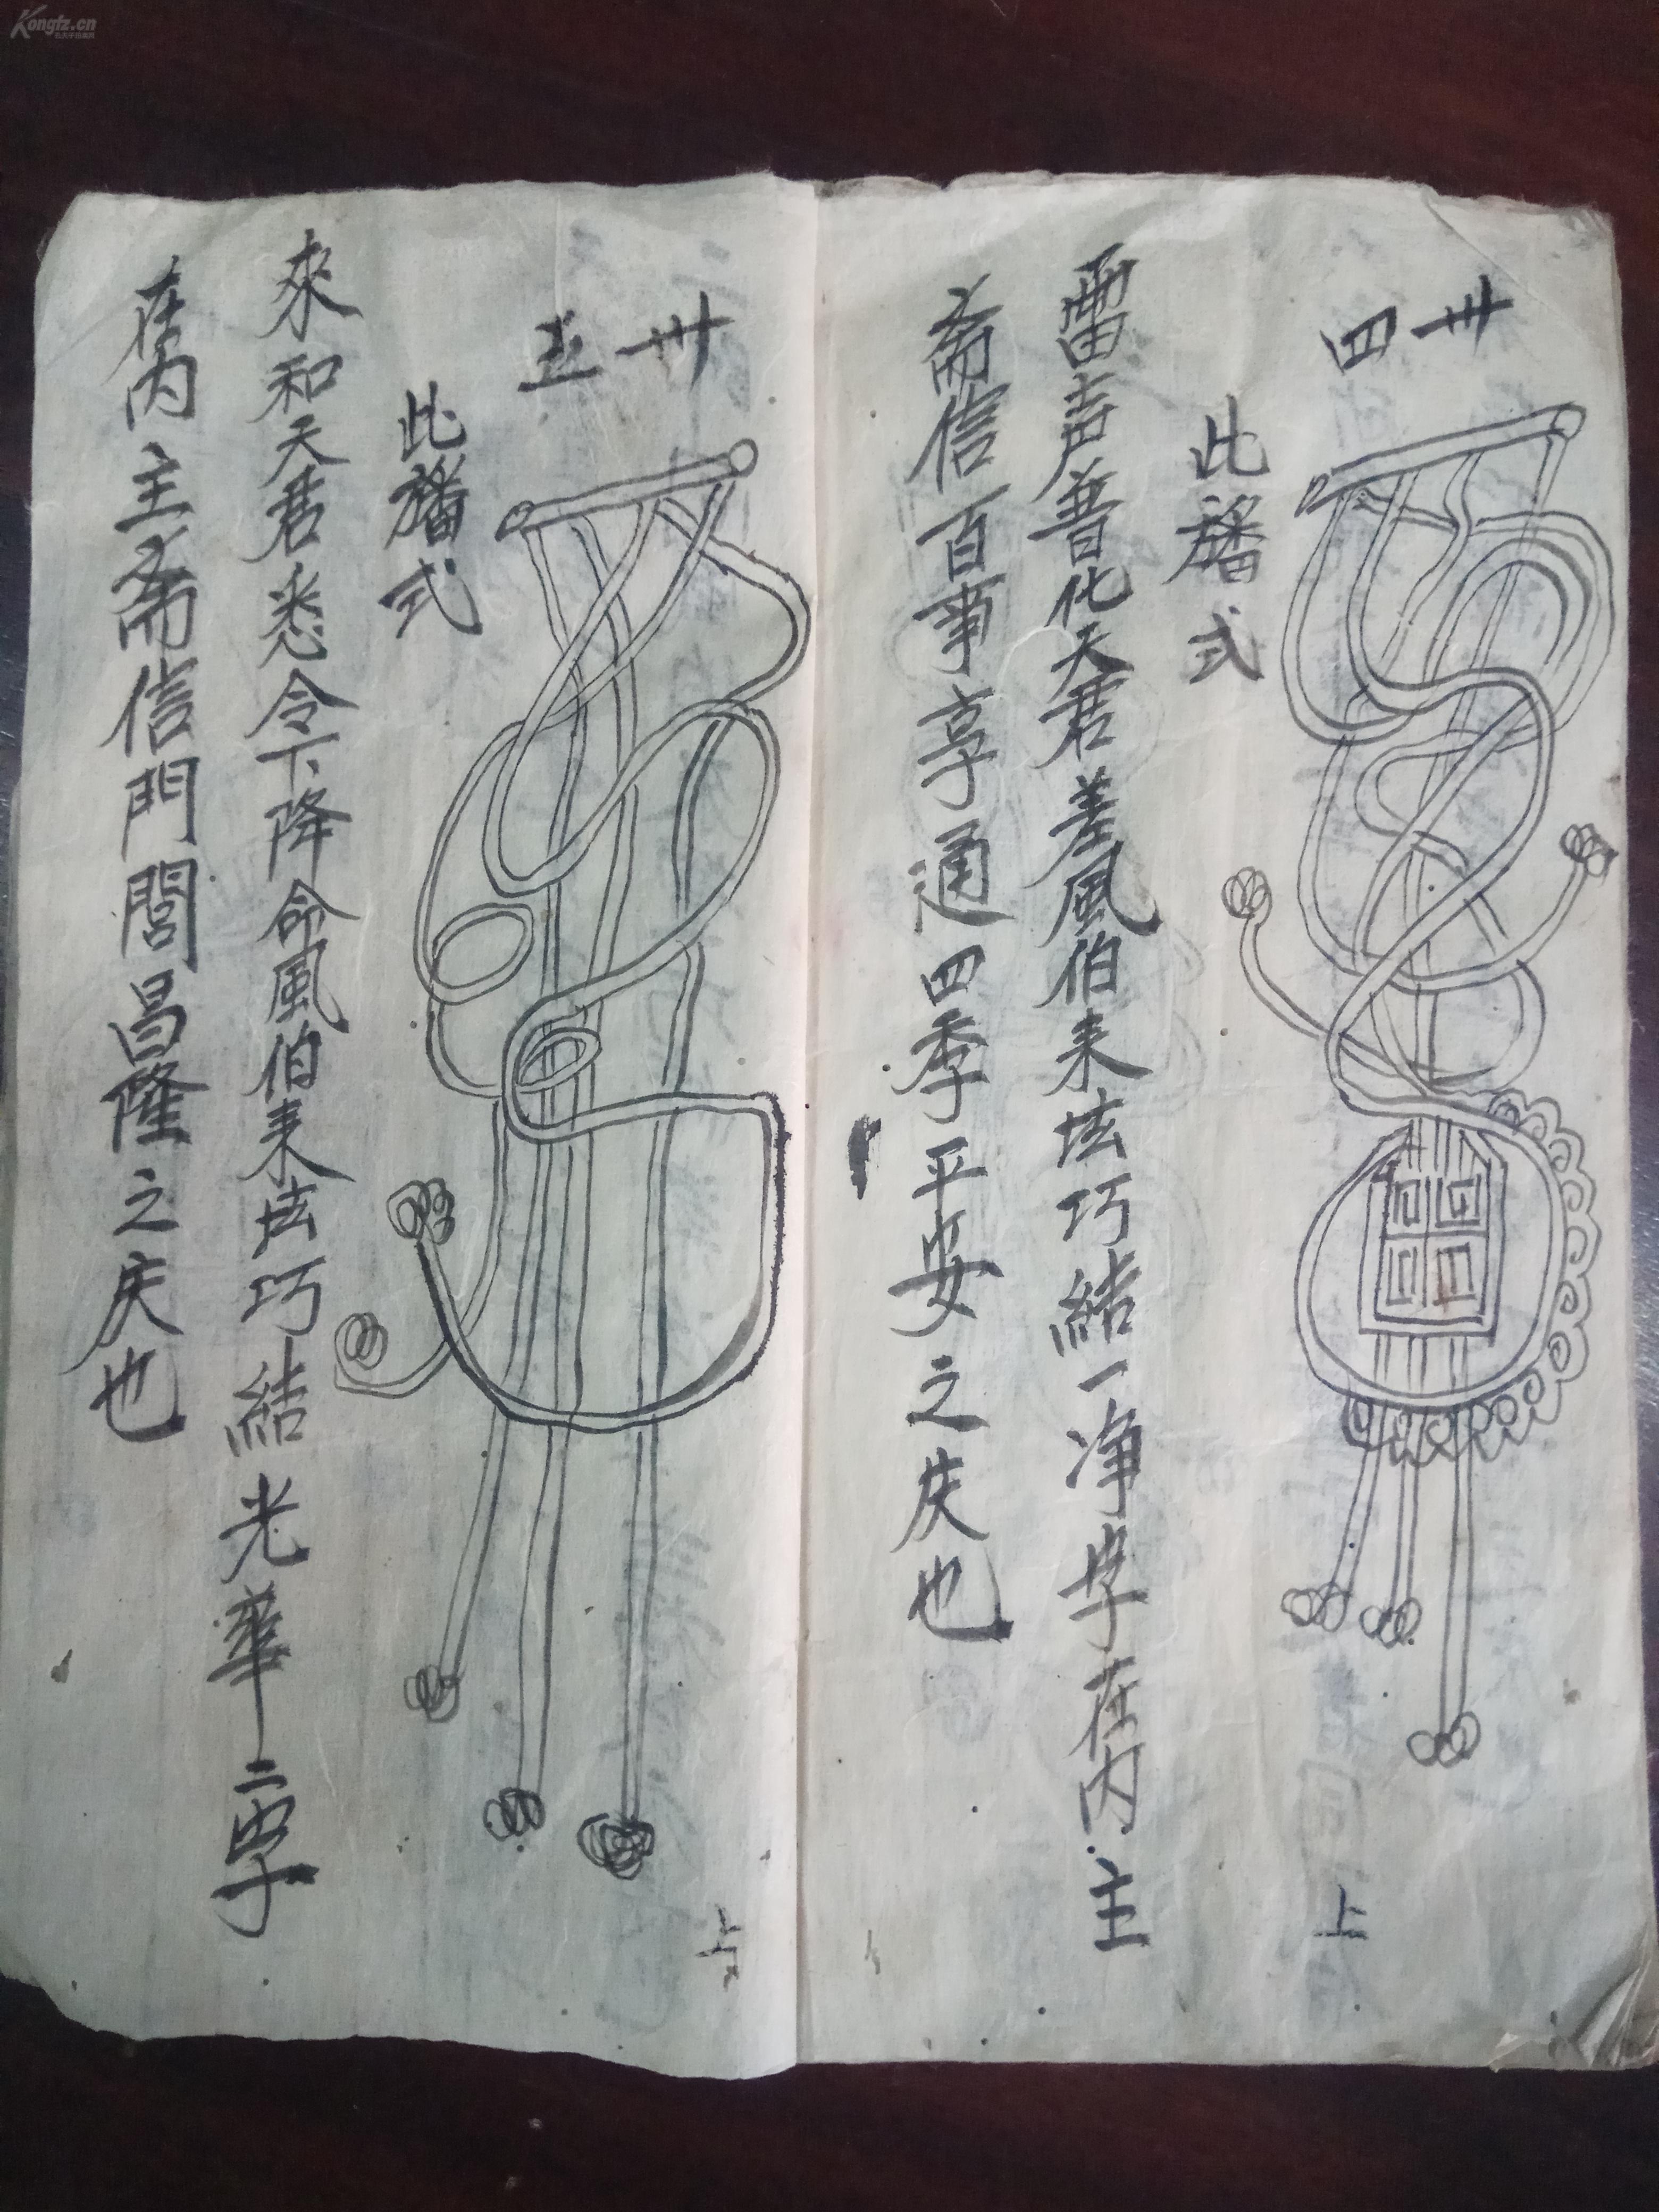 卅四
此旛式
雷声普化天君差風伯来坛巧結一净字在内主
斋信百事享通四季平安之庆也
上
卅五
此旛式
來和天君悉令下降命風伯来坛巧結光華二字
在内主斋信門閭昌隆之庆也
上
Kongfz.cn